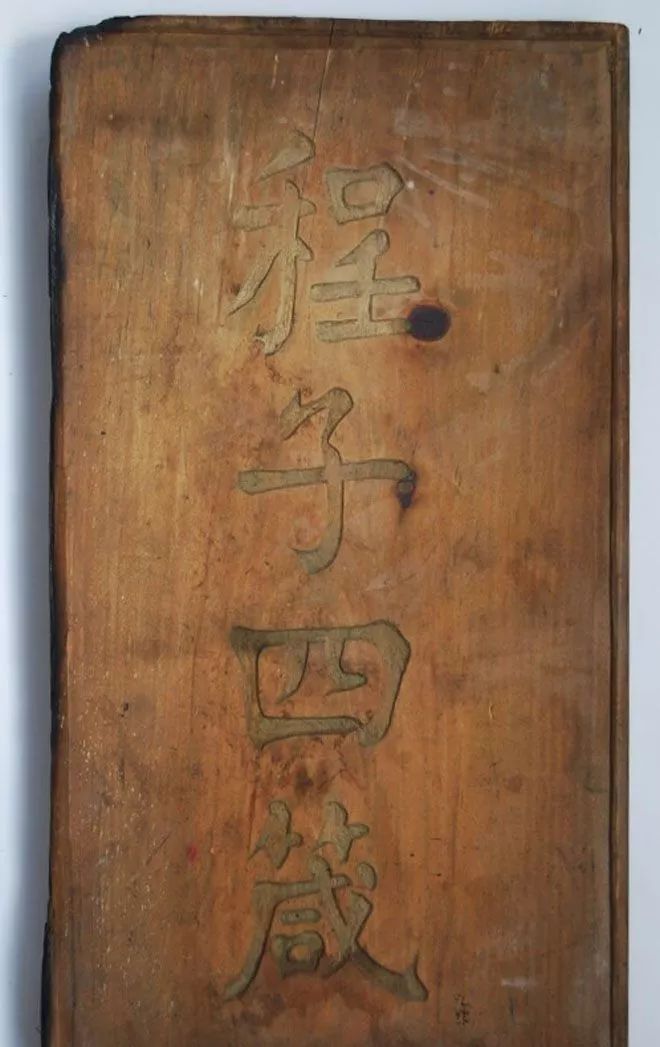 程子四箴